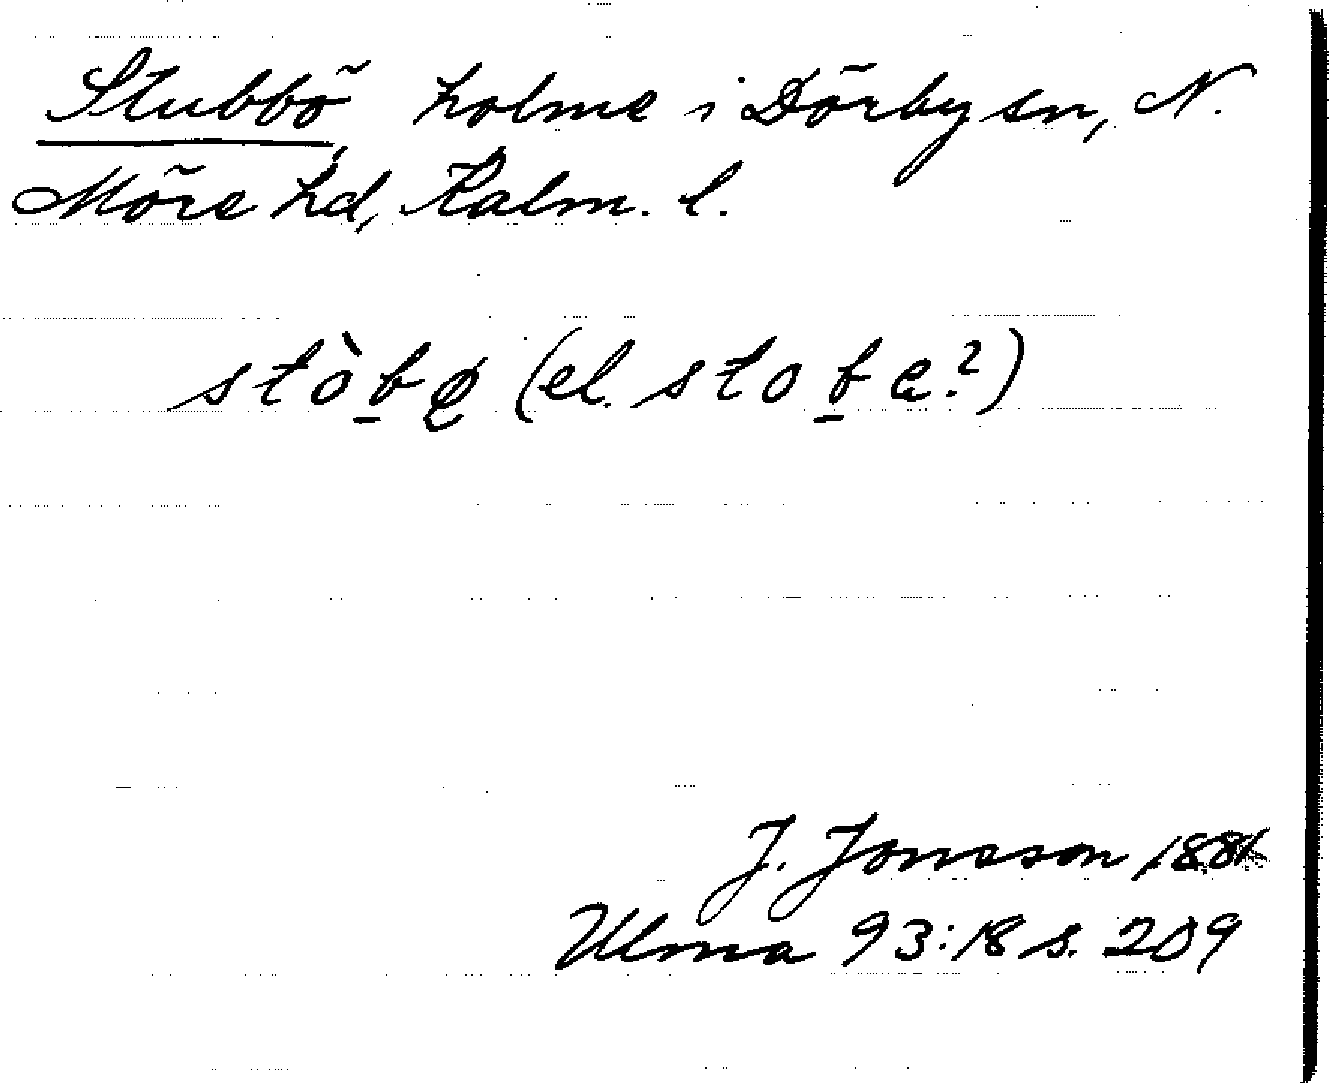 Stubbö, holme i Dörby sn, N.
Möre hd, Kalm. l.
stòb̲ø̨ (el. stob̲e?)
J. Jonsson 1881
Ulma 93:18 s. 209